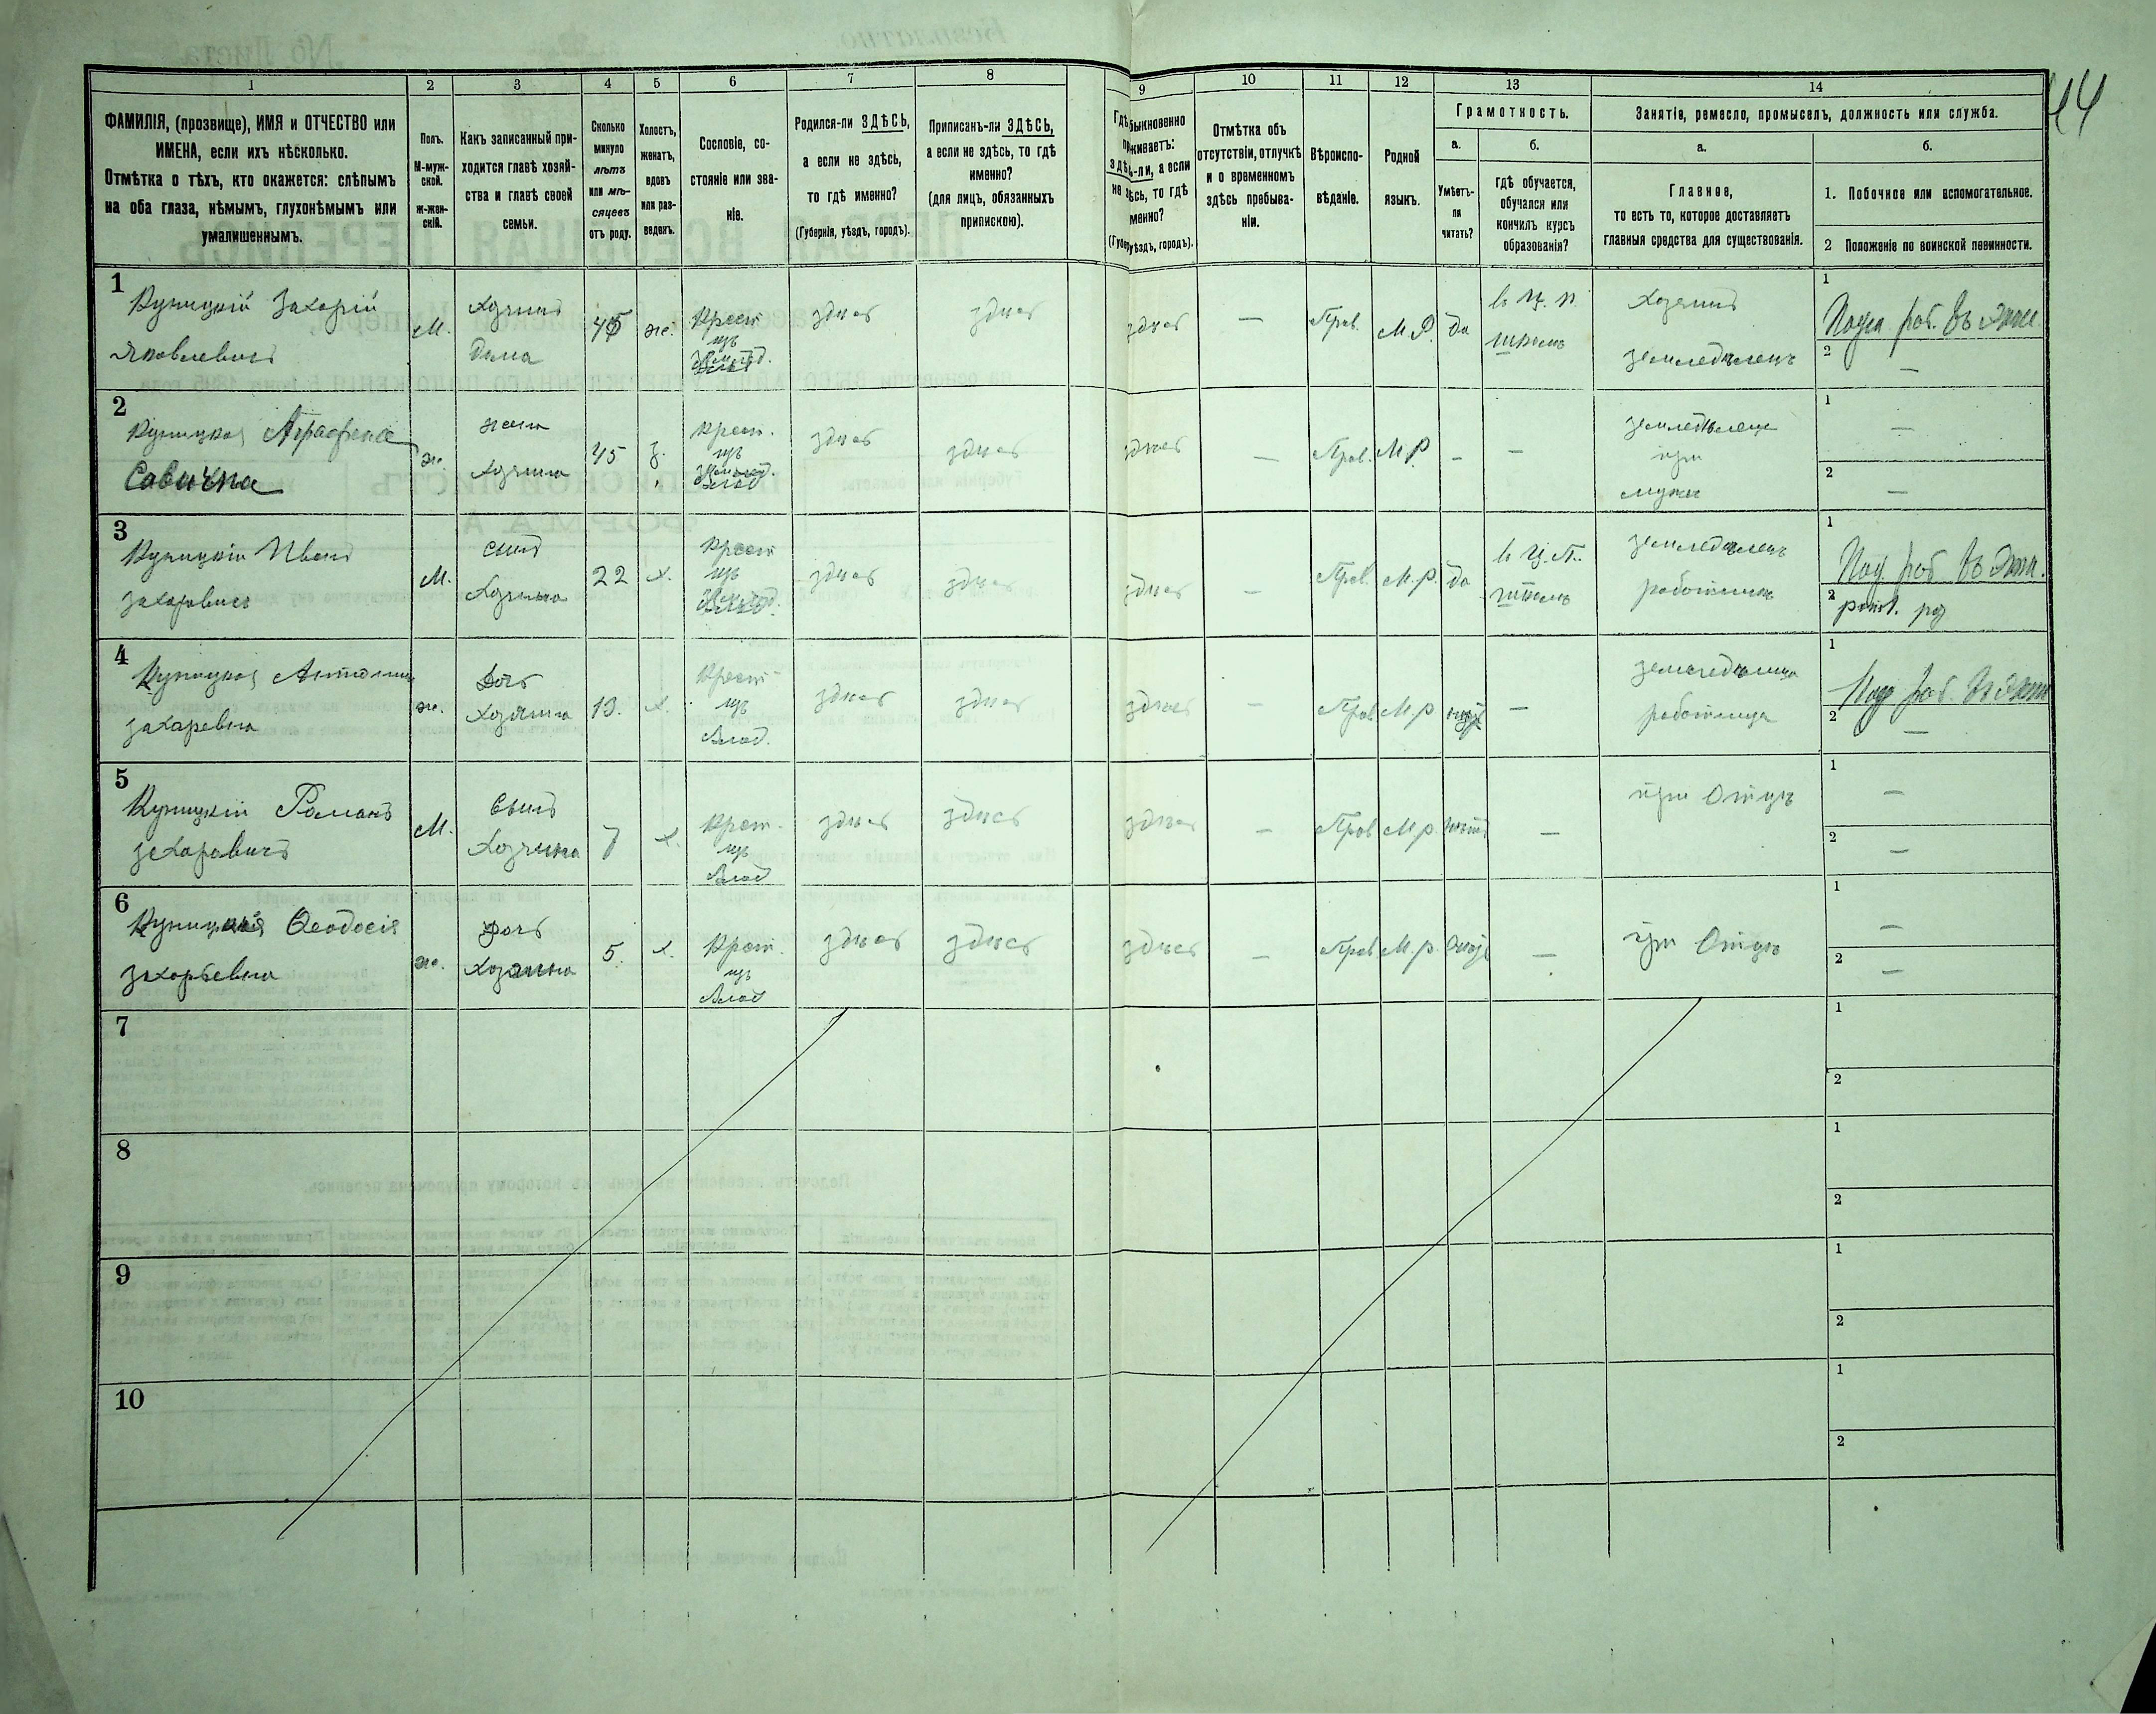 44
1 2 3 4 5 6 7 8 9 10 11 12 13 14
ФАМИЛІЯ, (прозвище), ИМЯ и ОТЧЕСТВО или
ИМЕНА, если ихъ нѣсколько.
Отмѣтка о тѣхъ, кто окажется: слѣпымъ
на оба глаза, нѣмымъ, глухонѣмымъ или
умалишеннымъ.
Полъ.
М-муж-
ской.
ж-жен-
скій.
Какъ записанный при-
ходится главѣ хозяй-
ства и главѣ своей
семьи.
Сколько
минуло
лѣтъ
или мѣ-
сяцевъ
отъ роду.
Холостъ,
женатъ,
вдовъ
или раз-
веденъ.
Сословіе, со-
стояніе или зва-
ніе.
Родился-ли ЗДѢСЬ,
а если не здѣсь,
то гдѣ именно?
(Губернія, уѣздъ, городъ).
Приписанъ-ли ЗДѢСЬ,
а если не здѣсь, то гдѣ
именно?
(для лицъ, обязанныхъ
припискою).
Гдѣ быкновенно
живаетъ:
-ли, а если
не сь, то гдѣ
менно?
(Губер уѣздъ, городъ).
Отмѣтка объ
отсутствіи, отлучкѣ
и о временномъ
здѣсь пребыва-
ніи.
Вѣроиспо-
вѣданіе.
Родной
языкъ.
Грамотность.
а.
Умѣетъ-
ли
читать?
б.
гдѣ обучается,
обучался или
кончилъ курсъ
образованія?
Занятіе, ремесло, промыселъ, должность или служба.
а.
Главное,
то есть то, которое доставляетъ
главныя средства для существованія.
б.
1. Побочное или вспомогательное.
2 Положеніе по воинской повинности.
1
Куницкій Захарій
Яковлевичъ
М.
хозяинъ
дома
45
ж.
Крест
изъ
здѣсь
здѣсь
здѣсь
—
Прав.
М.Р.
да
в ц. п.
школѣ
хозяинъ
земледѣлецъ
1
Поден раб. въ экон
2
—
2
Куницкая Аграфена
Савична
ж.
жена
хозяина
45
з.
крест.
изъ
здѣсь
здѣсь
здѣсь
—
Прав.
М.Р.
—
—
при
мужѣ
1
—
2
—
3
Куницкій Иванъ
М.
сынъ
хозяина
22
х.
крест
изъ
здѣсь
здѣсь
здѣсь
—
Прав.
М.р.
да
в ц. п.
школѣ
земледѣлецъ
работникъ
1
Под раб въ экон.
2
4
Куницкая
захаревна
ж.
Дочь
хозяина
13.
х.
крест
изъ
Влад.
здѣсь
здѣсь
здѣсь
—
Прав
М.р
—
работница
1
Под раб. въ экон
2
—
5
Куницкій Романъ
захаровичъ
М.
сынъ
хозяина
7
х.
крест.
изъ
Влад
здѣсь
здѣсь
здѣсь
—
Прав
М.р.
нѣтъ
—
при Отцѣ
1
—
2
—
6
Куницкая Феодосія
захарьевна
ж.
дочь
хозяина
5.
х.
крест.
изъ
Влад
здѣсь
здѣсь
здѣсь
—
Прав
М.р
—
при Отцѣ
1
—
2
—
7
1
2
8
1
2
9
1
2
10
1
2